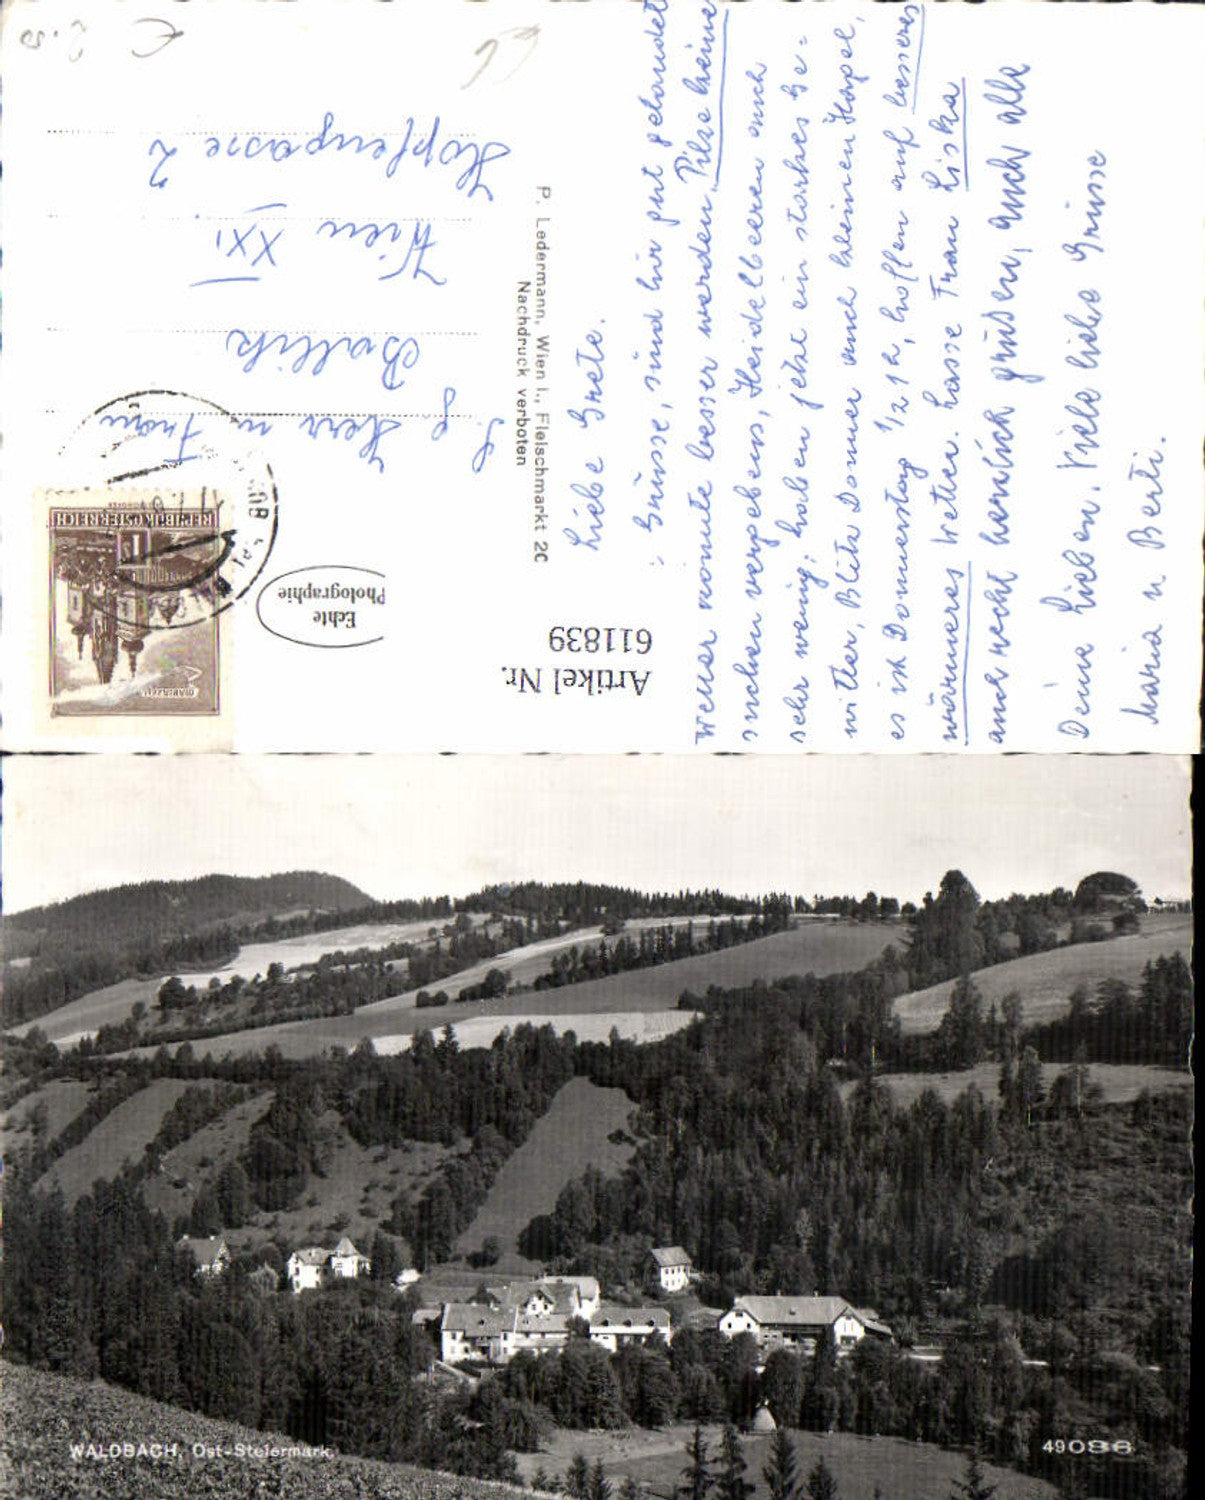 Liebe Grete.
Grüsse, sind hir gut gelandet
Wetter konnte besser werden, Pilze keine
suchen vergebens, Heidelbeeren auch
sehr wenig, haben jetzt ein starkes Ge-
witter, Blitz Donner und kleinen Hagel,
es ist Donnerstag 1/2 1 h, hoffen auf besseres
wärmeres Wetter. Lasse Frau Liska
auch recht herzlich grüßen, auch alle
Deine Lieben. Viele liebe Grüsse
Maria u Berti.
P. Ledermann, Wien I., Fleischmarkt 2C
Nachdruck verboten
Echte
Photographie
REPUBLIK ÖSTERREICH
1 S
MARIAZELL
Herr u Frau
Wien XXI.
Hopfengasse 2
Artikel Nr.
611839
WALDBACH, Ost-Steiermark.
49086